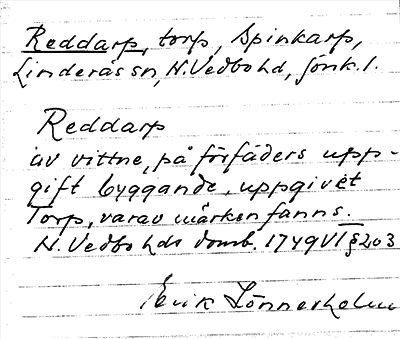 Reddarp, torp, Spinkarp,
Linderås sn, N. Vedbo hd, Jönk. l.
Reddarp
av vittne, på förfäders upp-
gift byggande, uppgivet
Torp, varav märken fanns.
N. Vedbo hds domb. 1749 VT § 203
Erik Lönnerholm